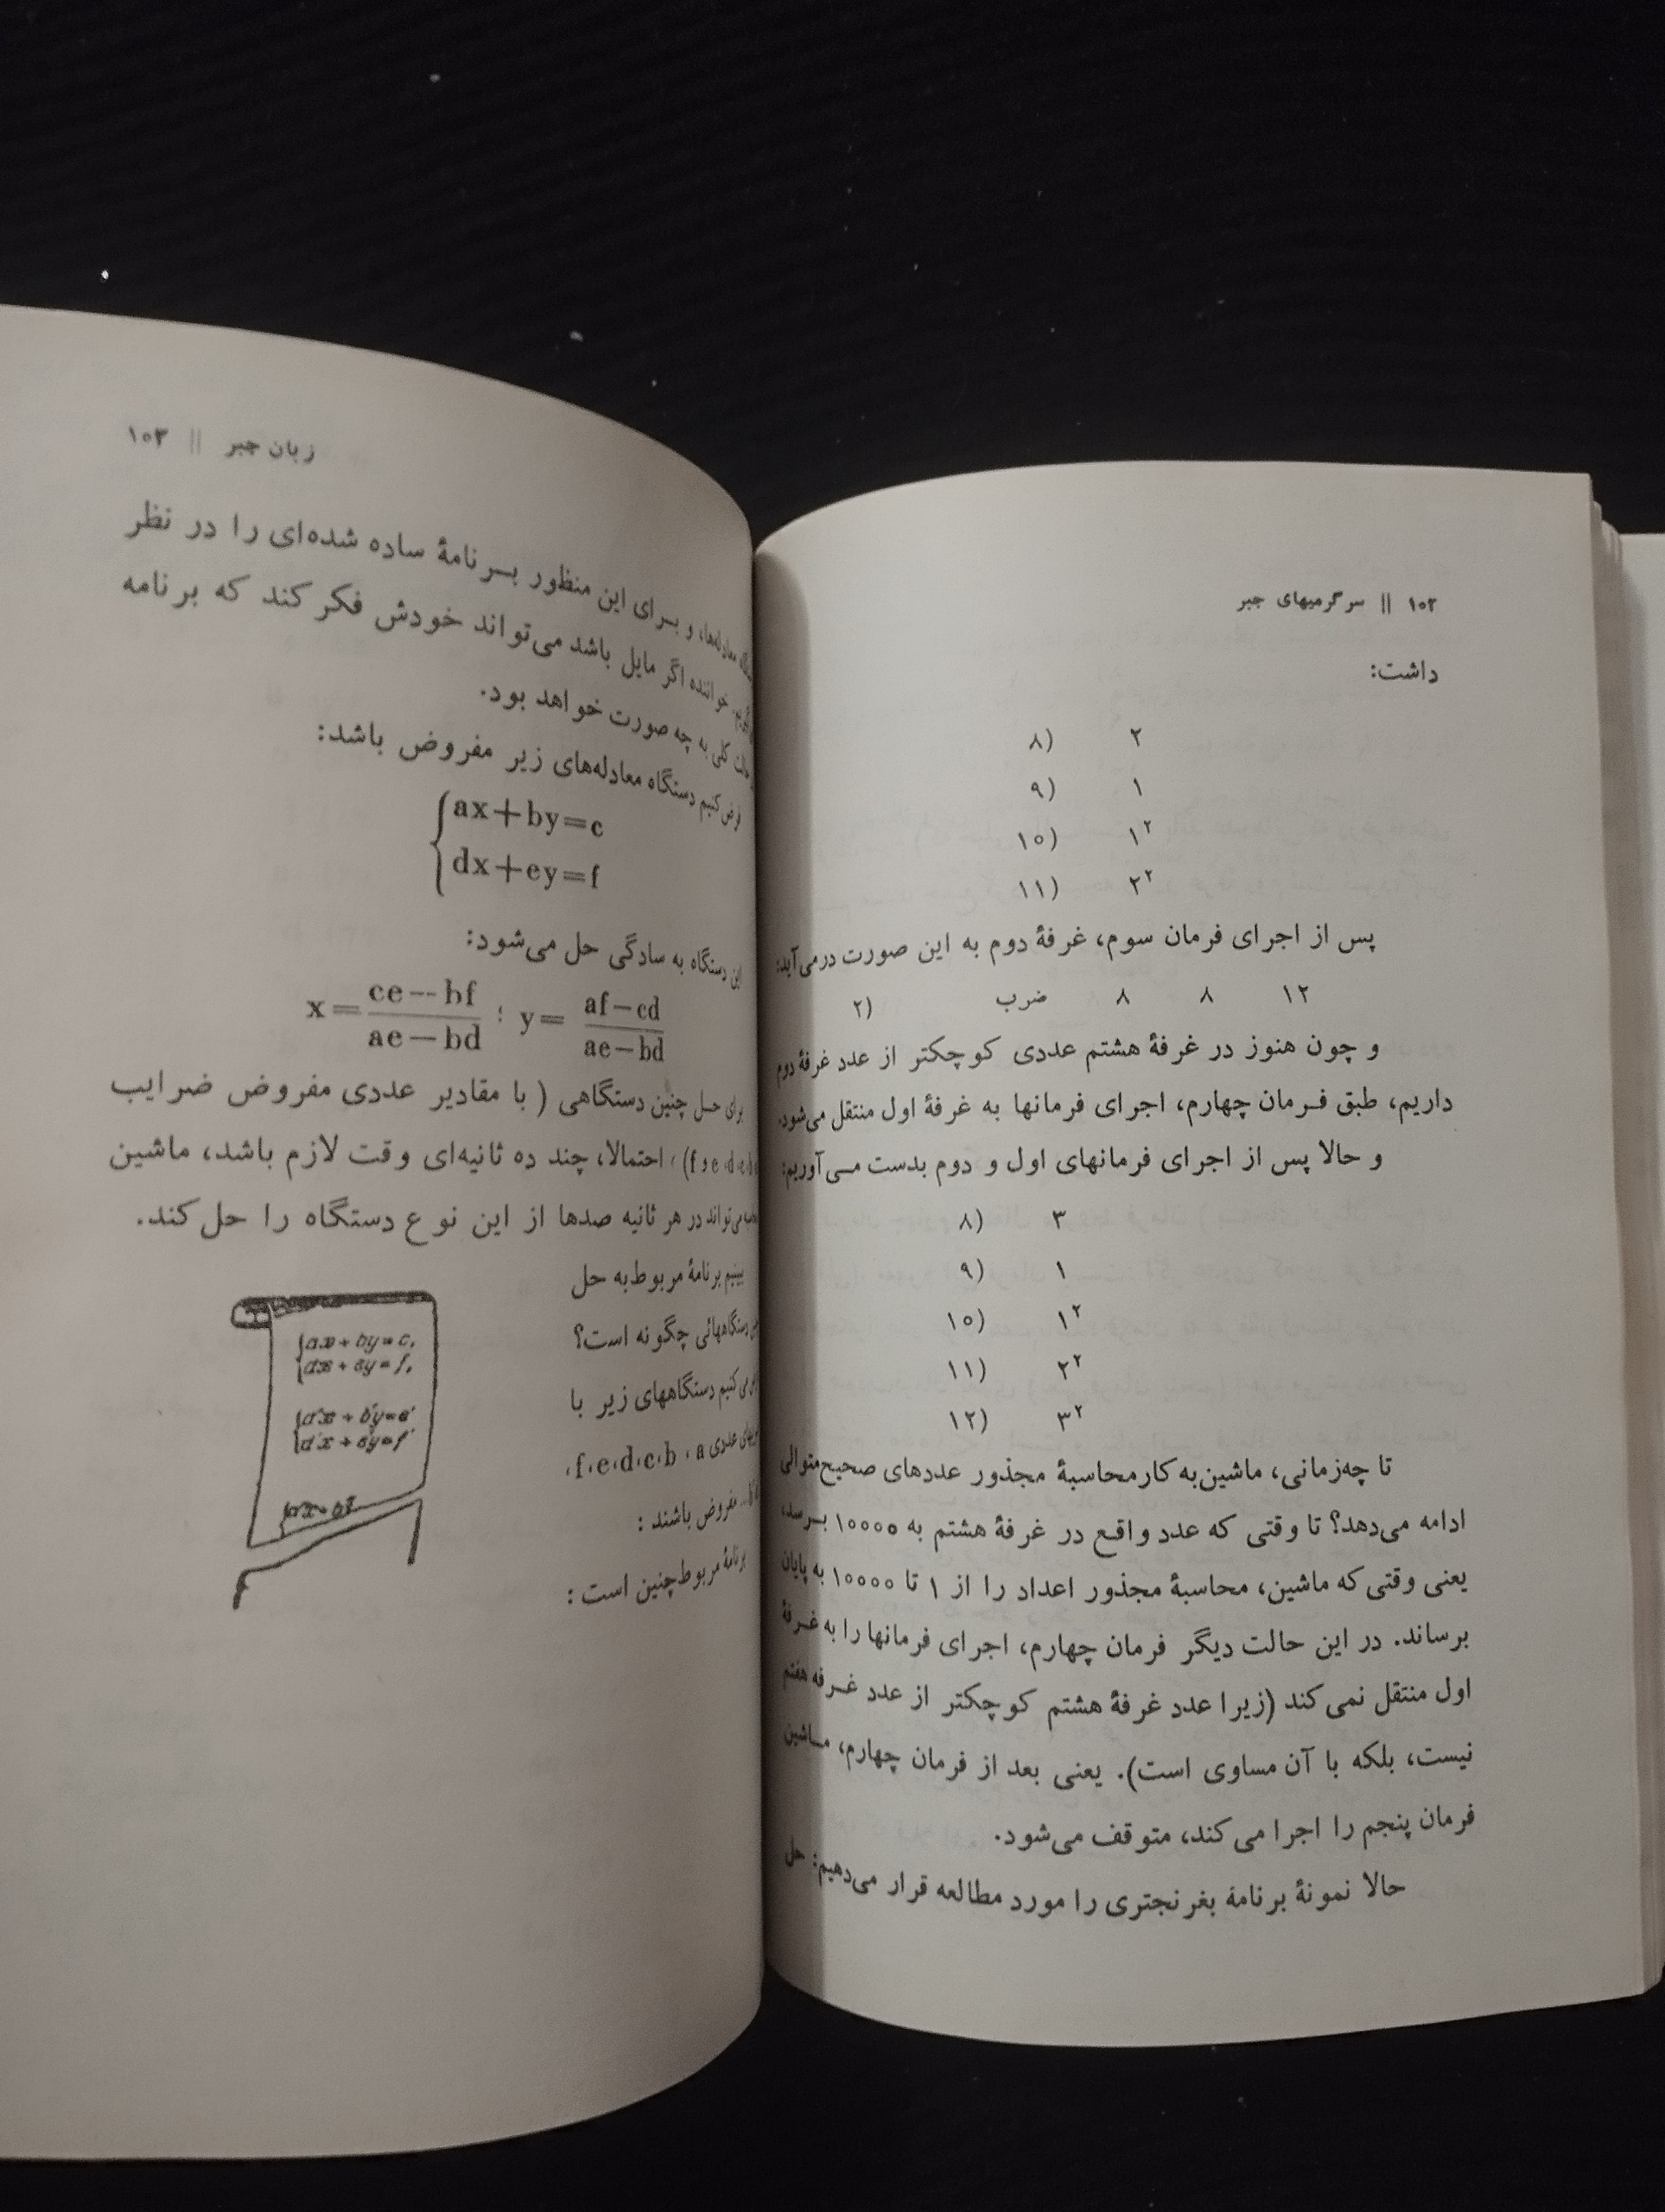 ۱۰۲ || سرگرمیهای جبر
داشت:
۸) ۲
۹) ۱
۱۰) ۱²
۱۱) ۲²
پس از اجرای فرمان سوم، غرفهٔ دوم به این صورت درمی‌آید:
۲) ضرب ۸ ۸ ۱۲
و چون هنوز در غرفهٔ هشتم عددی کوچکتر از عدد غرفهٔ دوم
داریم، طبق فرمان چهارم، اجرای فرمانها به غرفهٔ اول منتقل می‌شود.
و حالا پس از اجرای فرمانهای اول و دوم بدست می‌آوریم:
۸) ۳
۹) ۱
۱۰) ۱²
۱۱) ۲²
۱۲) ۳²
تا چه‌زمانی، ماشین‌به‌کارمحاسبهٔ مجذور عددهای صحیح‌متوالی
ادامه می‌دهد؟ تا وقتی که عدد واقع در غرفهٔ هشتم به ۱۰۰۰۰ برسد،
یعنی وقتی که ماشین، محاسبهٔ مجذور اعداد را از ۱ تا ۱۰۰۰۰ به پایان
برساند. در این حالت دیگر فرمان چهارم، اجرای فرمانها را به غرفهٔ
اول منتقل نمی‌کند (زیرا عدد غرفهٔ هشتم کوچکتر از عدد غرفه هفتم
نیست، بلکه با آن مساوی است). یعنی بعد از فرمان چهارم، ماشین
فرمان پنجم را اجرا می‌کند، متوقف می‌شود.
حالا نمونهٔ برنامهٔ بغرنجتری را مورد مطالعه قرار می‌دهیم: حل
زبان جبر || ۱۰۳
معادله‌ها، و برای این منظور برنامهٔ ساده شده‌ای را در نظر
خواننده اگر مایل باشد می‌تواند خودش فکر کند که برنامه
حالت کلی به چه صورت خواهد بود.
فرض کنیم دستگاه معادله‌های زیر مفروض باشد:
ax+by=c
dx+ey=f
این دستگاه به سادگی حل می‌شود:
x= (ce−bf)/(ae−bd) ؛ y= (af−cd)/(ae−bd)
برای حل چنین دستگاهی ( با مقادیر عددی مفروض ضرایب
d، e و f) ، احتمالا، چند ده ثانیه‌ای وقت لازم باشد، ماشین
می‌تواند در هر ثانیه صدها از این نوع دستگاه را حل کند.
ببینیم برنامهٔ مربوط به حل
دستگاههائی چگونه است؟
می‌کنیم دستگاههای زیر با
عددی a ، b ،c ،d ،e ،f ،
مفروض باشند :
برنامهٔ مربوط چنین است :
ax+by=c,
dx+ey=f,
a'x+b'y=c'
d'x+e'y=f'